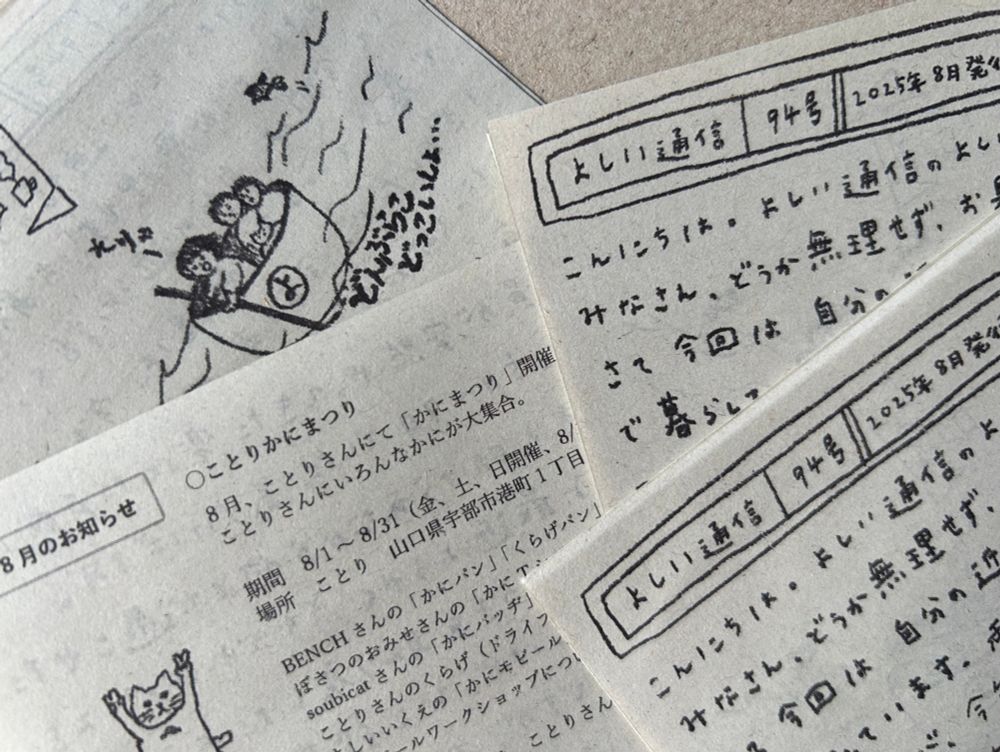 どんぶらこ
どっこいしょ…
よ
8月のお知らせ
○ことりかにまつり
8月、ことりさんにて「かにまつり」開催
ことりさんにいろんなかにが大集合。
期間 8/1～8/31（金、土、日開催、8/
場所 ことり 山口県宇部市港町1丁目
BENCHさんの「かにパン」「くらげパン」
ぼさつのおみせさんの「かにT
soubicatさんの「かにバッヂ」
ことりさんのくらげ（ドライフ
よしいいくえの「かにモビール
ールワークショップについ
ことりさん
よしい通信 94号 2025年8月発行
こんにちは。よしい通信のよし
みなさん、どうか無理せず、お
さて今回は 自分の
で暮らして
よしい通信 94号 2025年8月発行
こんにちは。よしい通信の
みなさん、どうか無理せず、
今回は 自分の近
ています。